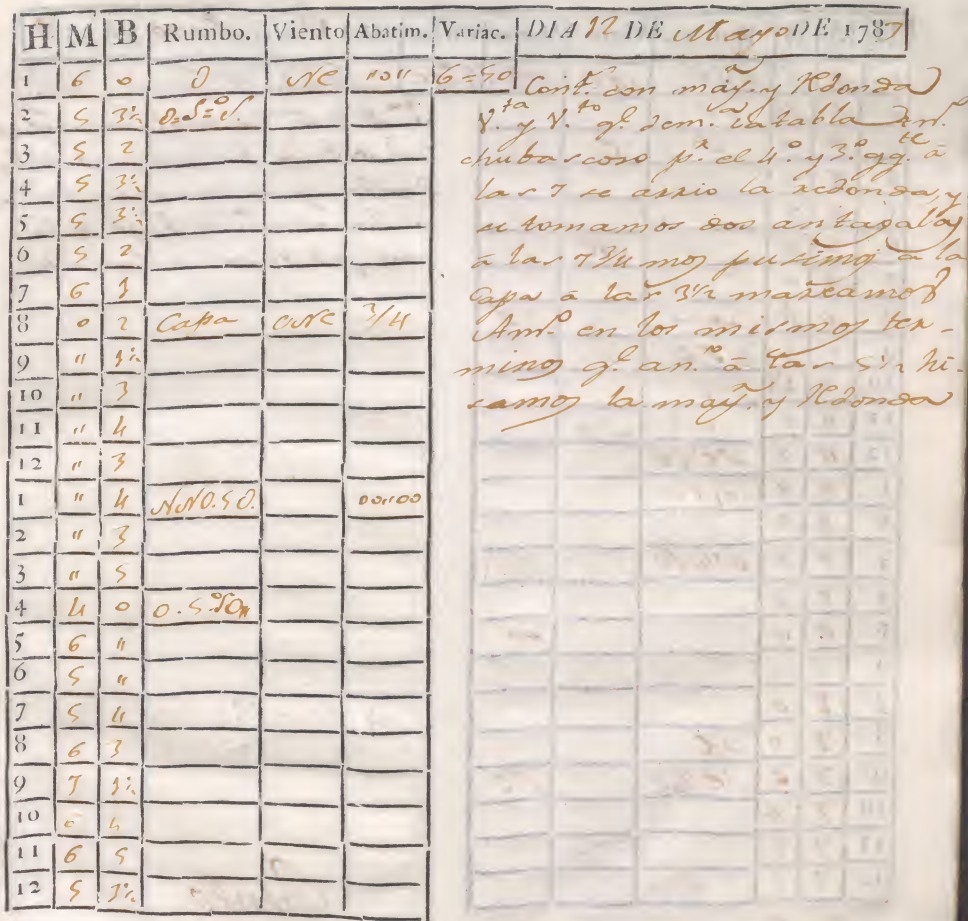 H M B Rumbo. Viento Abatim. Variac. DIA 12 DE Mayo DE 1787
1 6 0 O NE "0" 6=50
2 5 3½ O=5°=S.
3 5 2
4 5 3½
5 5 3½
6 5 2
7 6 1
8 0 2 Capa NE 3/4
9 " 1½
10 " 3
11 " 4
12 " 3
1 " 4 NNO.5O. 00"00
2 " 3
3 " 5
4 4 0 O.5°SO
5 6 "
6 5 "
7 5 4
8 6 3
9 7 1½
10
11 6 5
12 5 3½
Cont.^s con may.^a y Redonda
V.^ta y V.^to q.^e dem.^a la tabla
chubascoso p.^r el 4.° y 3.° qq.^te â
las 7 se arrio la redonda, y
se tomamos dos antagallas
a las 7 3/4 nos pusimos â la
Capa â las 3½ mareamos
Am.° en los mismos ter-
minos q.^e an.^o â las 5½ hi-
samos la may.^a y Redonda